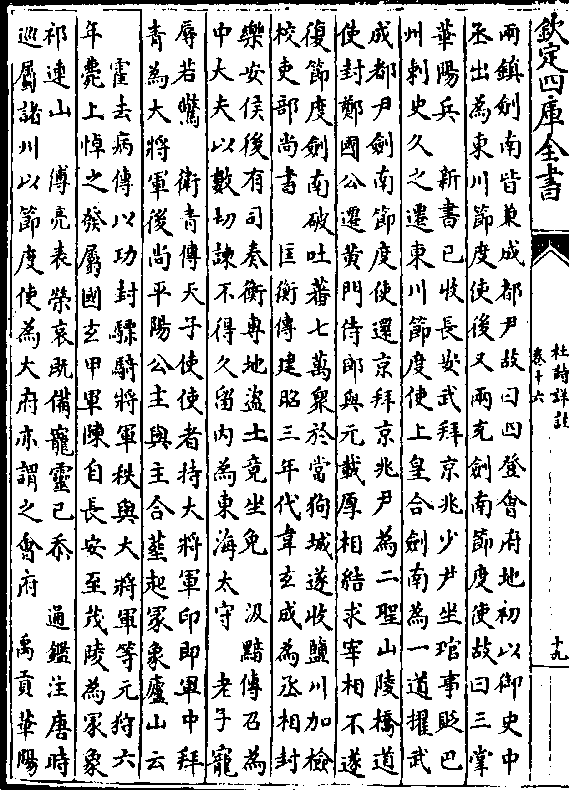 欽定四庫全書
杜詩詳註
卷十六
十九
兩鎮劍南皆兼成都尹故曰四登會府地初以御史中
丞出為東川節度使後又兩充劍南節度使故曰三掌
華陽兵　新書已收長安武拜京兆少尹坐琯事貶巴
州刺史久之遷東川節度使上皇合劍南為一道擢武
成都尹劍南節度使還京拜京兆尹為二聖山陵橋道
使封鄭國公遷黄門侍郎與元載厚相結求宰相不遂
復節度劍南破吐蕃七萬衆於當狗城遂收鹽川加檢
校吏部尚書　匡衡傳建昭三年代韋玄成為丞相封
樂安侯後有司奏衡專地盗土竟坐免　汲黯傳召為
中大夫以數切諫不得久留内為東海太守　老子寵
辱若驚　衛青傳天子使使者持大將軍印即軍中拜
青為大將軍後尚平陽公主與主合葬起冢象廬山云
　霍去病傳以功封驃騎將軍秩與大將軍等元狩六
年薨上悼之發屬國玄甲軍陳自長安至茂陵為冢象
祁連山　傅亮表榮哀既備寵靈已泰　通鑑注唐時
巡屬諸州以節度使為大府亦謂之會府　禹貢華陽